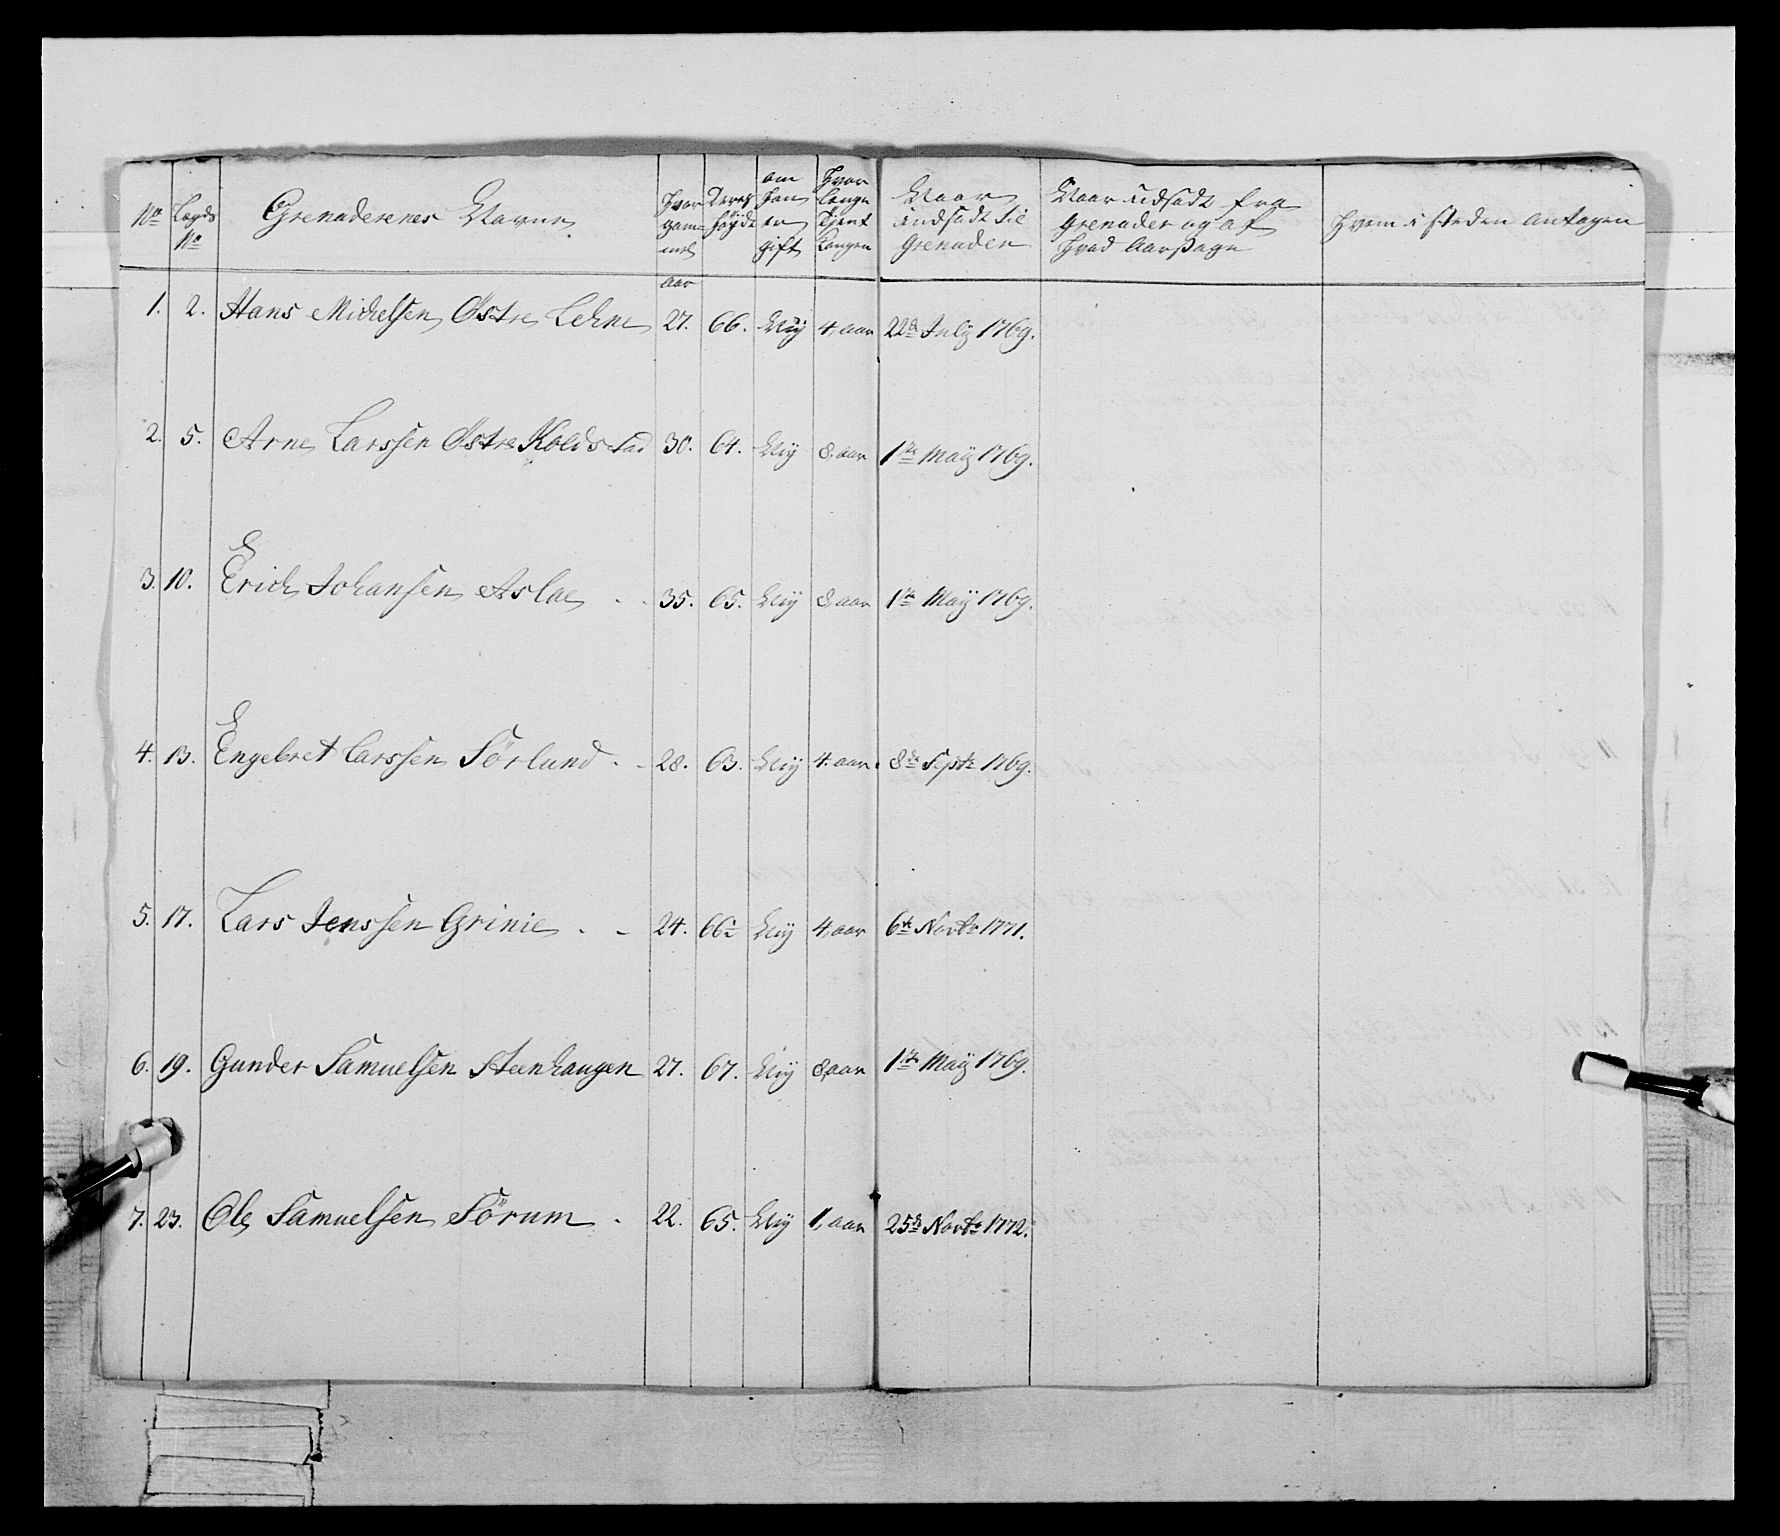 No Lægds No Grenaderenes Navne Hvor gam- mel Deres Høyde om han er gift Hvor længe Tient Kongen Naar indsadt til Grenader Naar udsadt fra Grenader og af hvad Aarsage Hvem i steden antagen
aar
1. 2. Hans Michelsen Østre Lehne 27. 66. Ney 4, aar 22de July 1769.
2. 5. Arne Larssen Østre Koldstad 30. 64. Ney 8, aar 1te May 1769.
3. 10. Erich Johansen Aslae 35. 65. Ney 8, aar 1te May 1769.
4. 13. Engebret Larssen Sørlund 28. 63. Ney 4. aar 8de Septr 1769.
5. 17. Lars Jenssen Grinie 24. Ney 4, aar 6te Novbr 1771.
6. 19. Gunder Samuelsen Steenhaugen 27. 67. Ney 8, aar 1te May 1769.
7. 23. Ole Samuelsen Sørum 22. 65. Ney 1, aar 25de Novbr 1772.